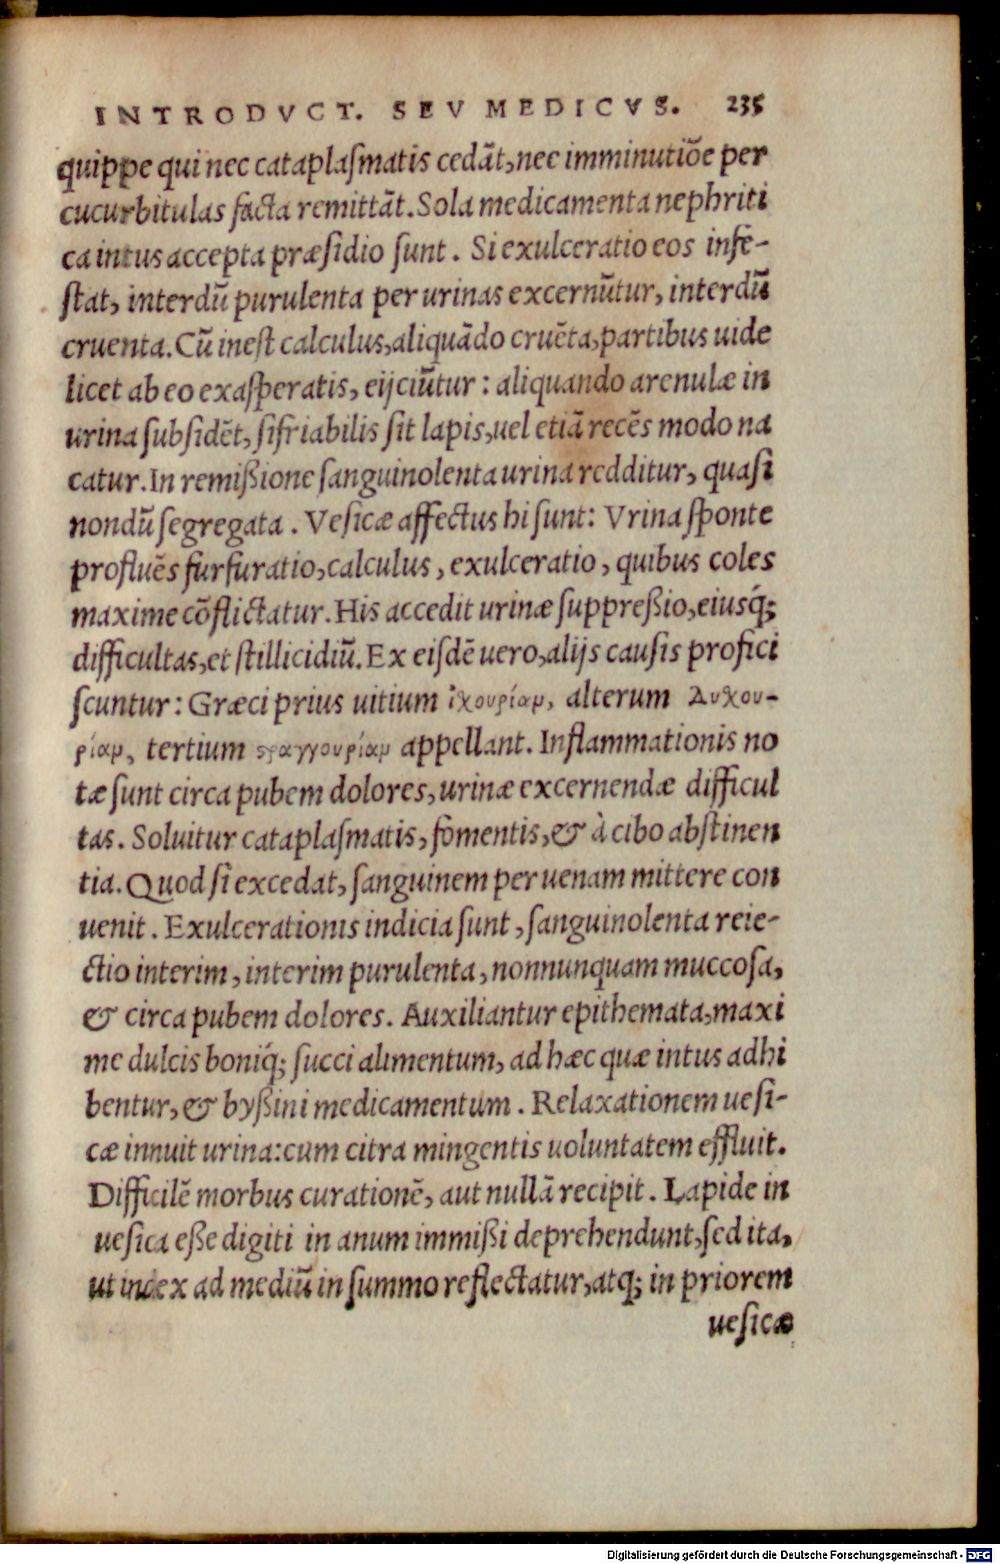 INTRODVCT. SEV MEDICVS. 235
quippe qui nec cataplaſmatis cedāt, nec imminutiōe per
cucurbitulas facta remittāt. Sola medicamenta nephriti
ca intus accepta præſidio ſunt. Si exulceratio eos infe-
ſtat, interdū purulenta per urinas excernūtur, interdū
cruenta. Cū ineſt calculus, aliquādo cruēta, partibus uide
licet ab eo exaſperatis, eijciūtur: aliquando arenulæ in
urina ſubſidēt, ſi friabilis ſit lapis, uel etiā recēs modo na
catur. In remißione ſanguinolenta urina redditur, quaſi
nondū ſegregata. Veſicæ affectus hi ſunt: Vrina ſponte
profluēs furfuratio, calculus, exulceratio, quibus coles
maxime cōflictatur. His accedit urinæ ſuppreßio, eiusq́;
difficultas, et ſtillicidiū. Ex eiſdē uero, alijs cauſis profici
ſcuntur: Græci prius uitium ἰχουρίαμ, alterum Δυχου-
ρίαμ, tertium ϛραγγουρίαμ appellant. Inflammationis no
tæ ſunt circa pubem dolores, urinæ excernendæ difficul
tas. Soluitur cataplaſmatis, fomentis, & à cibo abſtinen
tia. Quod ſi excedat, ſanguinem per uenam mittere con
uenit. Exulcerationis indicia ſunt, ſanguinolenta reie-
ctio interim, interim purulenta, nonnunquam muccoſa,
& circa pubem dolores. Auxiliantur epithemata, maxi
me dulcis boniq́; ſucci alimentum, ad hæc quæ intus adhi
bentur, & byßini medicamentum. Relaxationem ueſi-
cæ innuit urina: cum citra mingentis uoluntatem effluit.
Difficilē morbus curationē, aut nullā recipit. Lapide in
ueſica eße digiti in anum immißi deprehendunt, ſed ita,
ut index ad mediū in ſummo reflectatur, atq; in priorem
ueſicæ
Digitalisierung gefördert durch die Deutsche Forschungsgemeinschaft - DFG